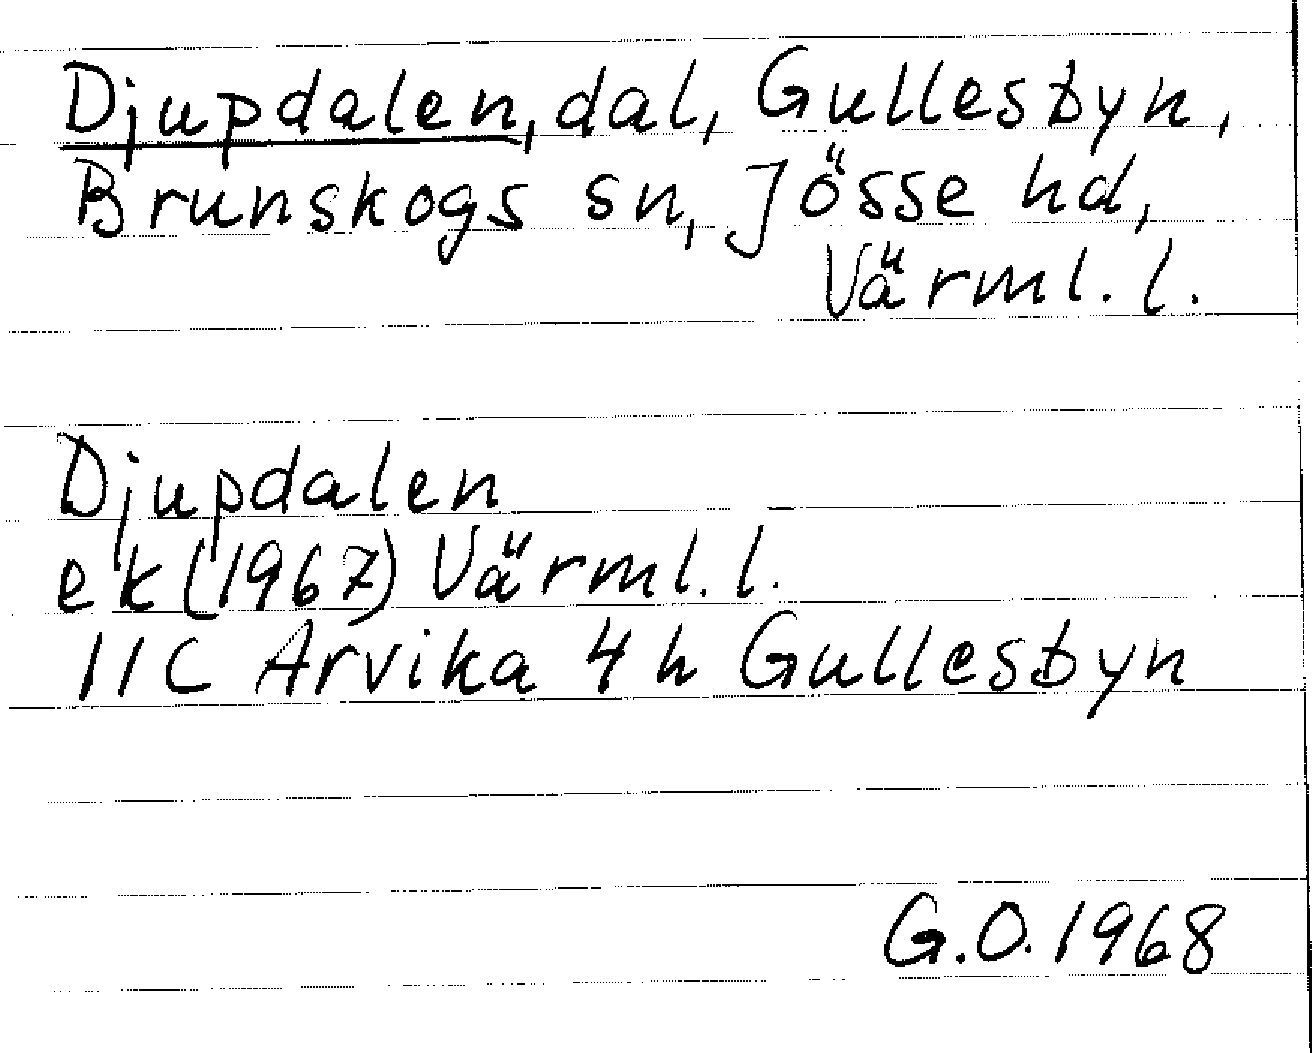 Djupdalen, dal, Gullesbyn,
Brunskogs sn, Jösse hd,
Värml. l.
Djupdalen
ek (1967) Värml. l.
11C Arvika 4 h Gullesbyn
G.O. 1968